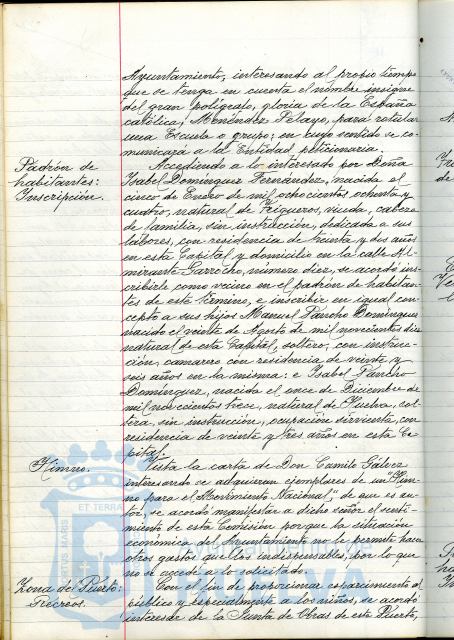 Ayuntamiento, interesando al propio tiempo
que se tenga en cuenta el nombre insigne
del gran polígrafo, gloria de la España
católica, Menéndez Pelayo, para rotular
una Escuela o grupo; en cuyo sentido se co-
municará a la Entidad peticionaria.
Padrón de
habitantes:
Inscripción.
Accediendo a lo interesado por Doña
Isabel Domínguez Fernández, nacida el
cinco de Enero de mil ochocientos ochenta y
cuatro, natural de Trigueros, viuda, cabeza
de familia, sin instrucción, dedicada a sus
labores, con residencia de treinta y dos años
en esta Capital y domicilio en la calle Al-
mirante Garrocho, número diez, se acordó ins-
cribirle como vecino en el padrón de habitan-
tes de este término, e inscribir en igual con-
cepto a sus hijos Manuel Pancho Domínguez
nacido el veinte de Agosto de mil novecientos diez
natural de esta Capital, soltero, con instruc-
ción, camarero con residencia de veinte y
seis años en la misma: e Isabel Pancho
Domínguez, nacida el once de Diciembre de
mil novecientos trece, natural de Huelva, sol-
tera, sin instrucción, ocupación sirvienta, con
residencia de veinte y tres años en esta Ca-
pital.
Himno.
Vista la carta de Don Camilo Gálvez
interesando se adquieran ejemplares de un "Him-
no para el Movimiento Nacional" de que es au-
tor, se acordó manifestar a dicho señor el senti-
miento de esta Comisión porque la situación
económica del Ayuntamiento no le permite hacer
otros gastos que los indispensables, por lo que
no se accede a lo solicitado.
Zona del Puerto:
Recreos.
Con el fin de proporcionar esparcimiento al
público y especialmente a los niños, se acordó
interesar de la Junta de Obras de este Puerto,
ET TERRA